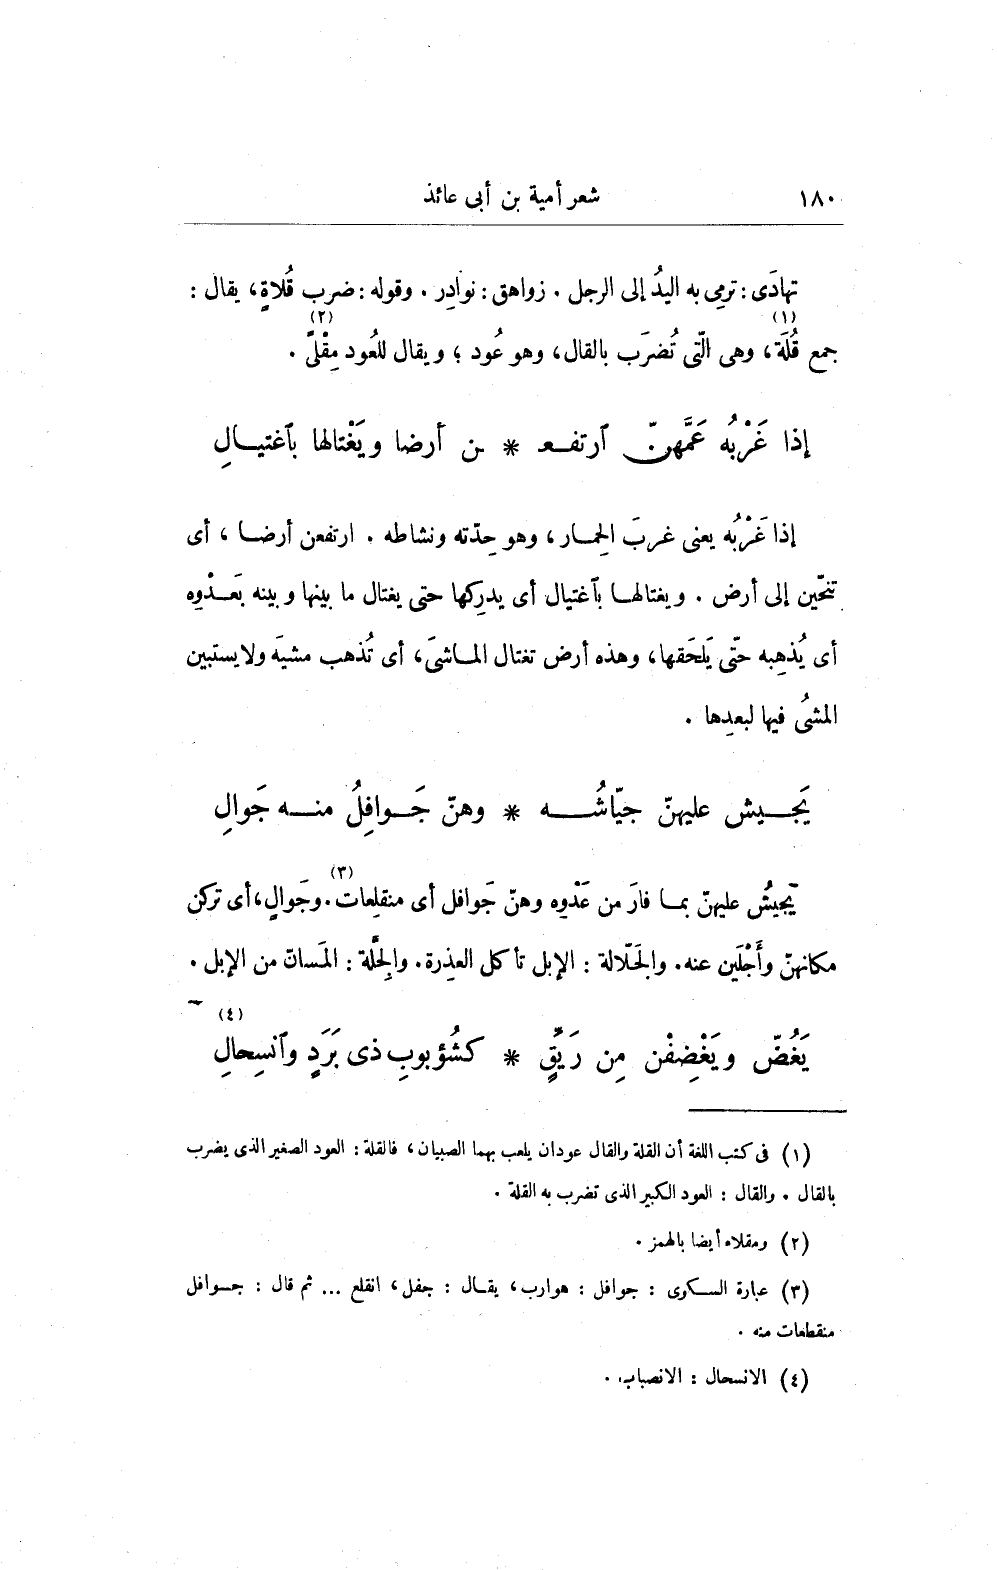 ١٨٠ شعر أمية بن أبى عائذ
تهادَى : ترمِى به اليدُ إلى الرجل . زواهق : نوادِر . وقوله : ضرب قُلاةٍ، يقال :
(١) (٢)
جمع قُلَة، وهى الّتى تُضرَب بالقال، وهو عُود ؛ ويقال للعُود مِقْلًى .
إذا غَرْبُه عَمَّهنّ ٱرتفعـ * ـن أرضا ويَغْتالها بٱغتيالِ
إذا غَرْبُه يعنى غربَ الحِمار، وهو حِدّته ونشاطه . ارتفعن أرضا ، أى
تنحّين إلى أرض . ويغتالها بٱغتيال أى يدرِكها حتى يغتال ما بينها وبينه بَعدْوِه
أى يُذهِبه حتّى يَلحَقها، وهذه أرض تغتال الماشىَ، أى تُذهب مشيَه ولا يستبين
المشىُ فيها لبعدِها .
يَجيش عليهنّ جيّاشُه * وهنّ جَوافِلُ منه جَوالِ
(٣)
يَجيشُ عليهنّ بما فارَ من عَدْوِه وهنّ جَوافل أى منقلِعات . وجَوالٍ، أى تركن
مكانهنّ وأَجْلَين عنه . والجَلّالة : الإبل تأكل العذِرة . والجِلّة : المَسانّ من الإبل .
(٤)
يَغُضّ ويَغْضِفْن مِن رَيِّقٍ * كشُؤبوبِ ذى بَرَدٍ وٱنسِحالِ
(١) فى كتب اللغة أن القلة والقال عودان يلعب بهما الصبيان، فالقلة : العود الصغير الذى يضرب
بالقال . والقال : العود الكبير الذى تضرب به القلة .
(٢) ومقلاء أيضا بالهمز .
(٣) عبارة السكرى : جوافل : هوارب، يقال : جفل، انقلع ... ثم قال : جوافل
منقطعات منه .
(٤) الانسحال : الانصباب .